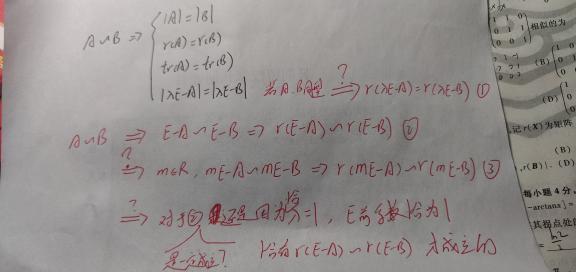 A∽B ⇒ { |A|=|B|
r(A)=r(B)
tr(A)=tr(B)
|λE-A|=|λE-B| 若A.B ?⇒ r(λE-A)=r(λE-B) ①
A∽B ⇒ E-A∽E-B ⇒ r(E-A)∽r(E-B) ②
?⇒ m∈R, mE-A∽mE-B ⇒ r(mE-A)∽r(mE-B) ③
?⇒ 对于② 还是因为 =1, E前系数恰为1
是一定成立? 恰有r(E-A)∽r(E-B) 才成立的
相似的为
(B)
(D)
,记r(X)为矩阵
(B)
,r(B)}. (D)
每小题4分,
-arctan
其拐点处的